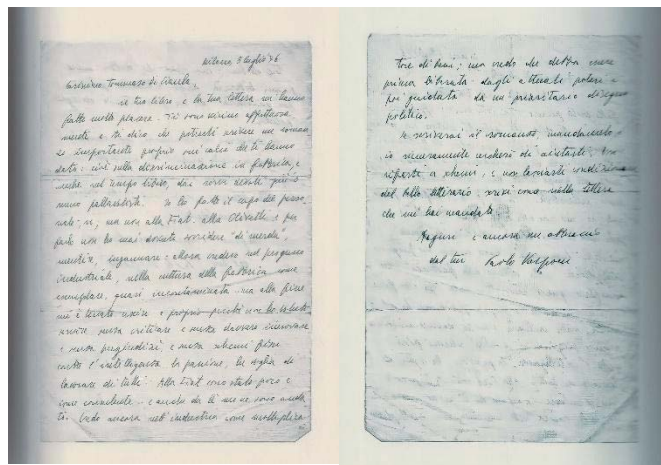 Milano 3 luglio 76
Carissimo Tommaso Di Ciaula,
il tuo libro e la tua lettera mi hanno
fatto molto piacere. Ti sono vicino affettuosa
mente e ti dico che potresti scrivere un romanzo
importante proprio sui calci che ti hanno
dato: cioè sulla discriminazione in fabbrica, e
anche nel tempo libero, dai
Io ho fatto il capo del perso
nale, sì, ma non alla Fiat: alla Olivetti e per
farlo non ho mai dovuto sorridere "di merda",
mentire, ingannare: allora credevo nel progresso
industriale, nella cultura della fabbrica come
esemplare, quasi incontaminata ma alla fine
me ne è toccato uscire e proprio perché
senza criticare e senza davvero innovare
e senza pregiudizi, e senza schemi
contro l'intelligenza la passione, la voglia di
lavorare di tutti. Alla Fiat sono stato poco e
come consulente - e anche da lì me ne sono anda
to. Credo ancora nell'industria come moltiplica
tore di beni; ma credo che debba essere
prima liberata dagli attuali poteri e
poi guidata da un prioritario disegno
politico.
Se scriverai il romanzo, mandamelo,
io sicuramente cercherò di aiutarti. Non
rifarti a schemi, e non lasciarti condizionare
dal bello letterario, scrivi come nella lettera
che mi hai mandato.
Auguri e ancora un abbraccio
dal tuo Paolo Volponi